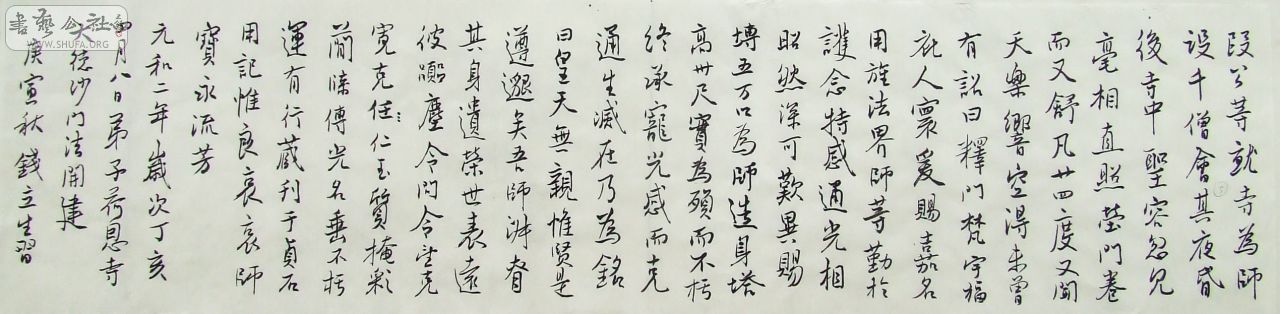 段公等就寺為師
设千僧會其夜昏
後寺中聖容忽見
毫相直照瑩門卷
而又舒凡廿四度又聞
天樂響空得未曾
有詔曰釋門梵宇福
庇人寰爰賜嘉名
用旌法界師等勤於
護念特感通光相
昭然深可歎異賜
塼五万口為師造身塔
高卅尺寶為殞而不朽
终承寵光感而克
通生滅在乃為銘
曰皇天無親惟賢是
遵邈矣吾師淋眘
其身遺榮世表遠
彼嚻塵令問令望克
寛克任仁玉質掩彩
蕳牒傳光名垂不朽
運有行藏刊于貞石
用記惟良哀哀師
寶永流芳
元和二年嵗次丁亥
四月八日弟子荷恩寺
大德沙门法開建
庚寅秋錢立生習
書藝公社
WWW.SHUFA.ORG